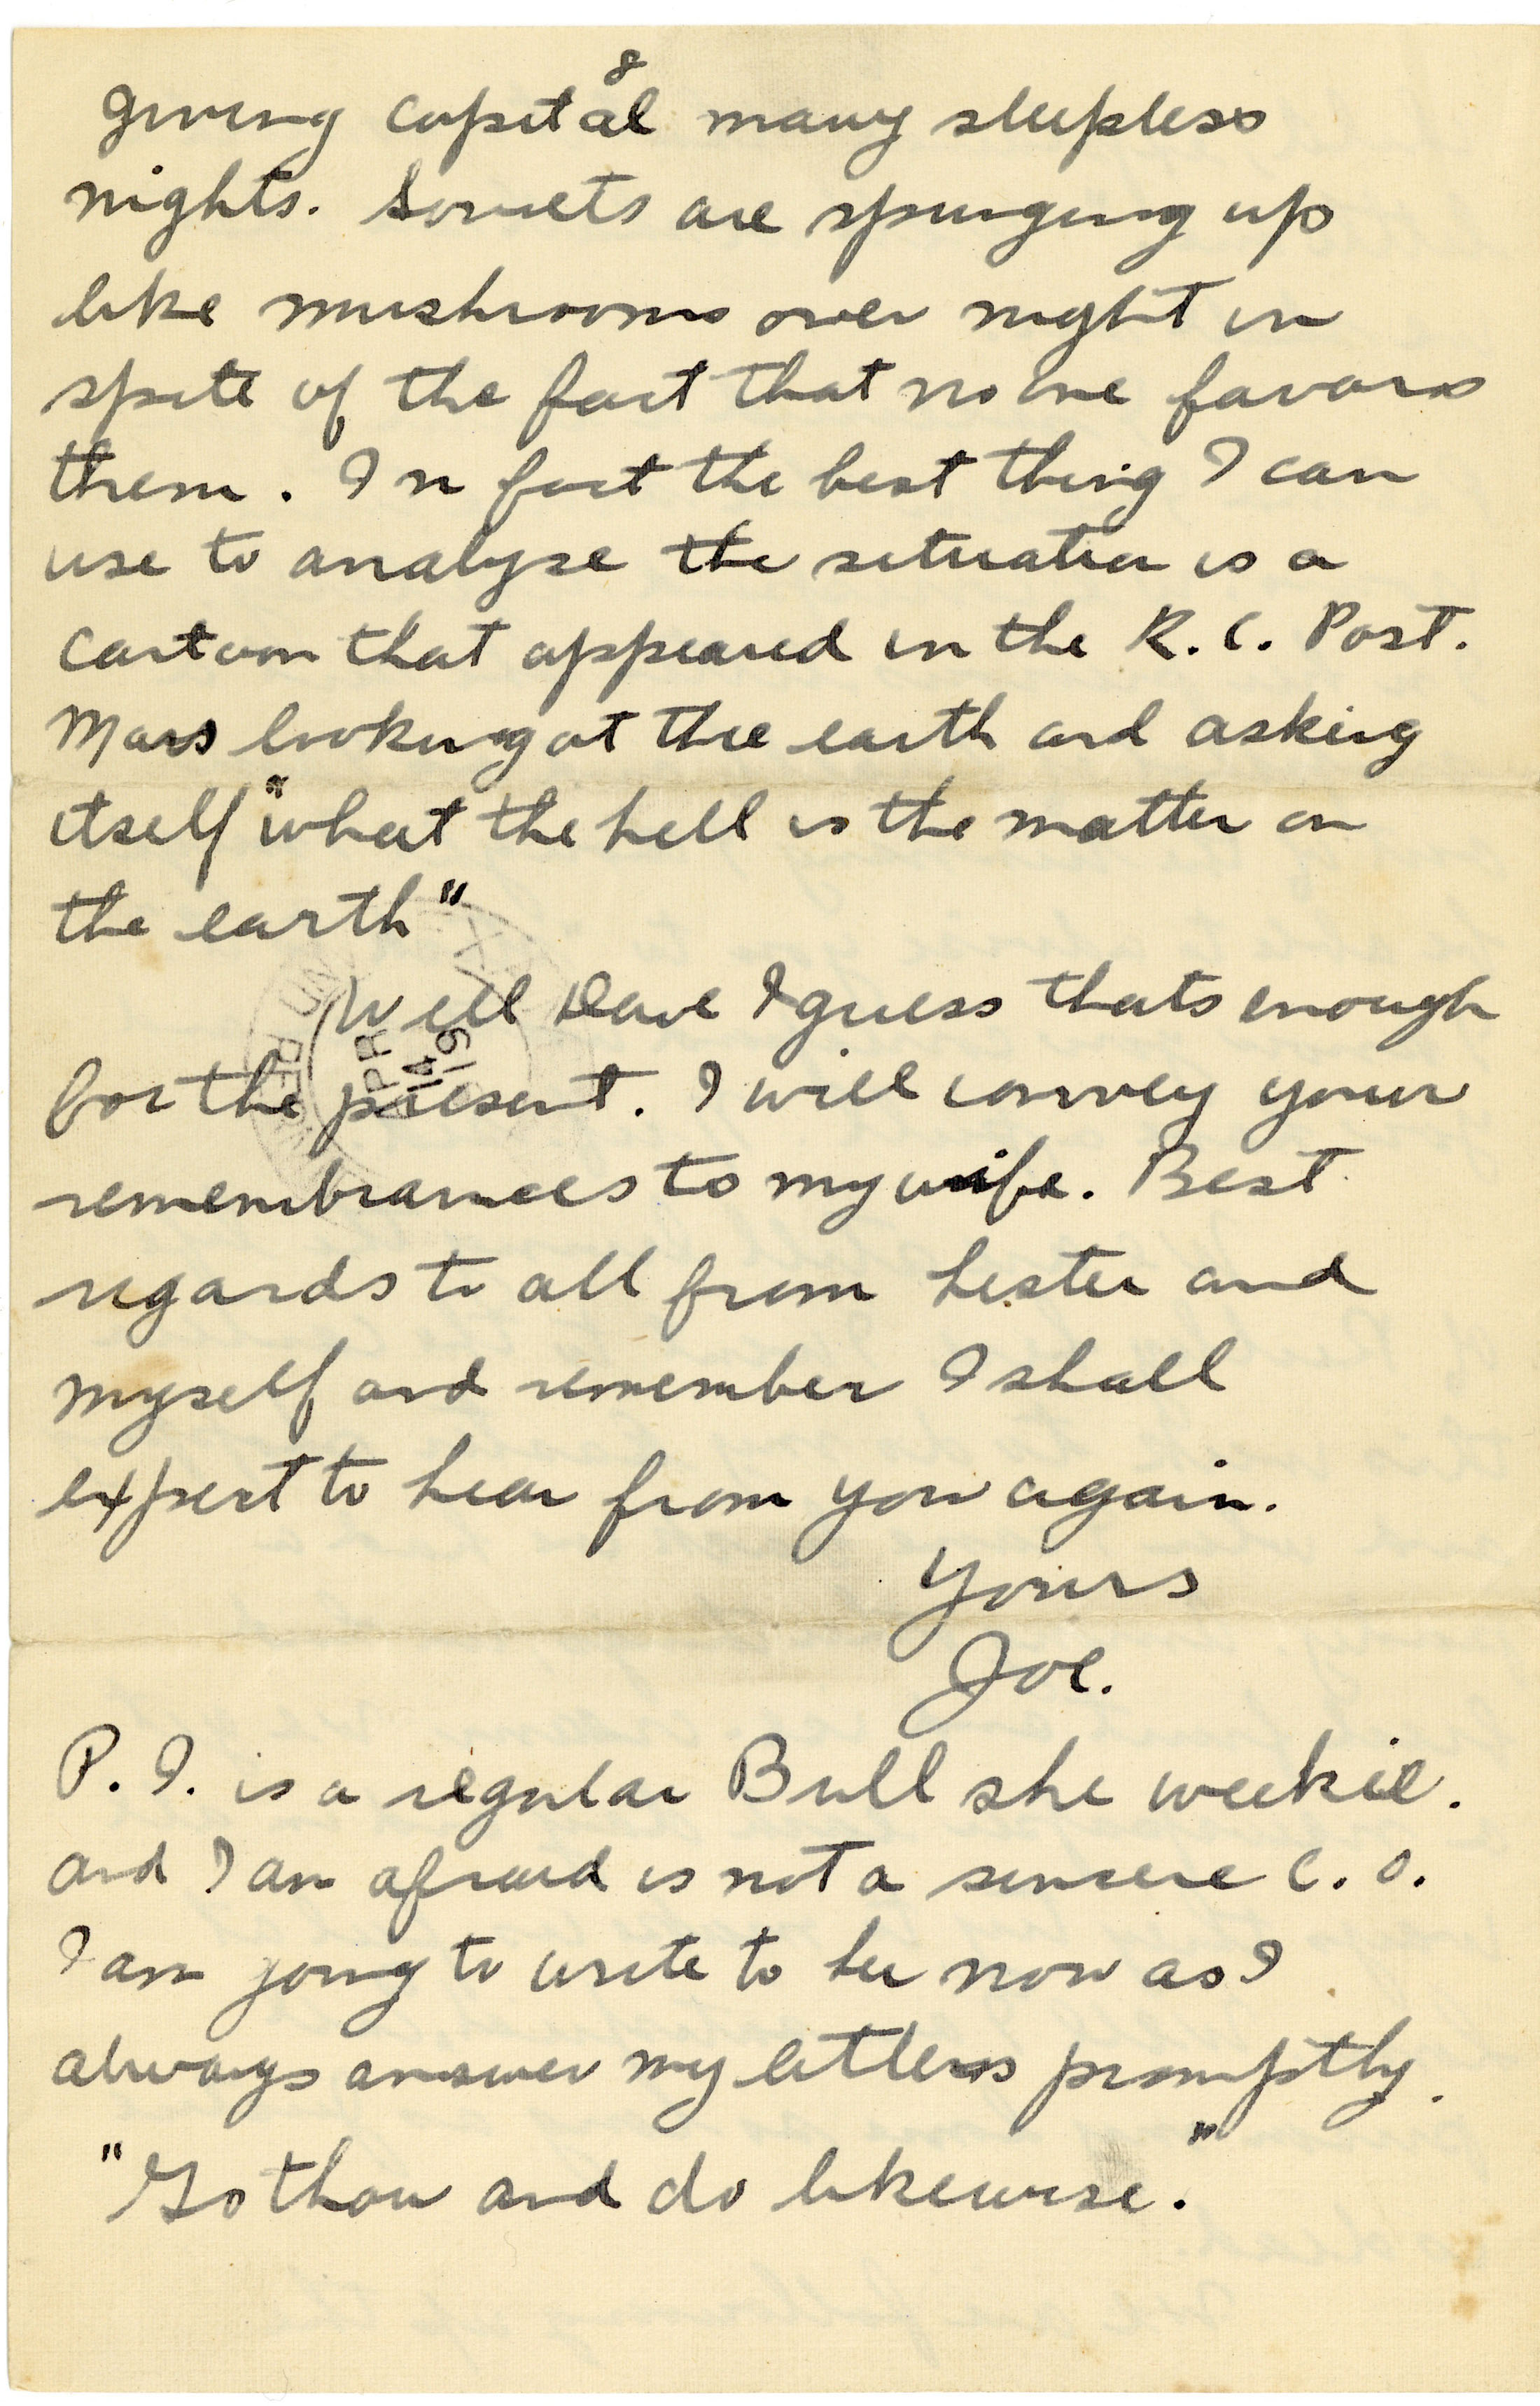 8
giving capital many sleepless
nights. Soviets are springing up
like mushrooms over night in
spite of the fact that no one favors
them. In fact the best thing I can
use to analyse the situation is a
cartoon that appeared in the K. C. Post.
Mars looking at the earth and asking
itself "what the hell is the matter on
the earth"
Well Dave I guess thats enough
for the present. I will convey your
remembrances to my wife. Best
regards to all from Lester and
myself and remember I shall
expect to hear from you again.
Yours
Joe.
P. I. is a regular Bull she
and I am afraid is not a sincere C. O.
I am going to write to her now as I
always answer my letters promptly.
"Go thou and do likewise."
APR
14
19